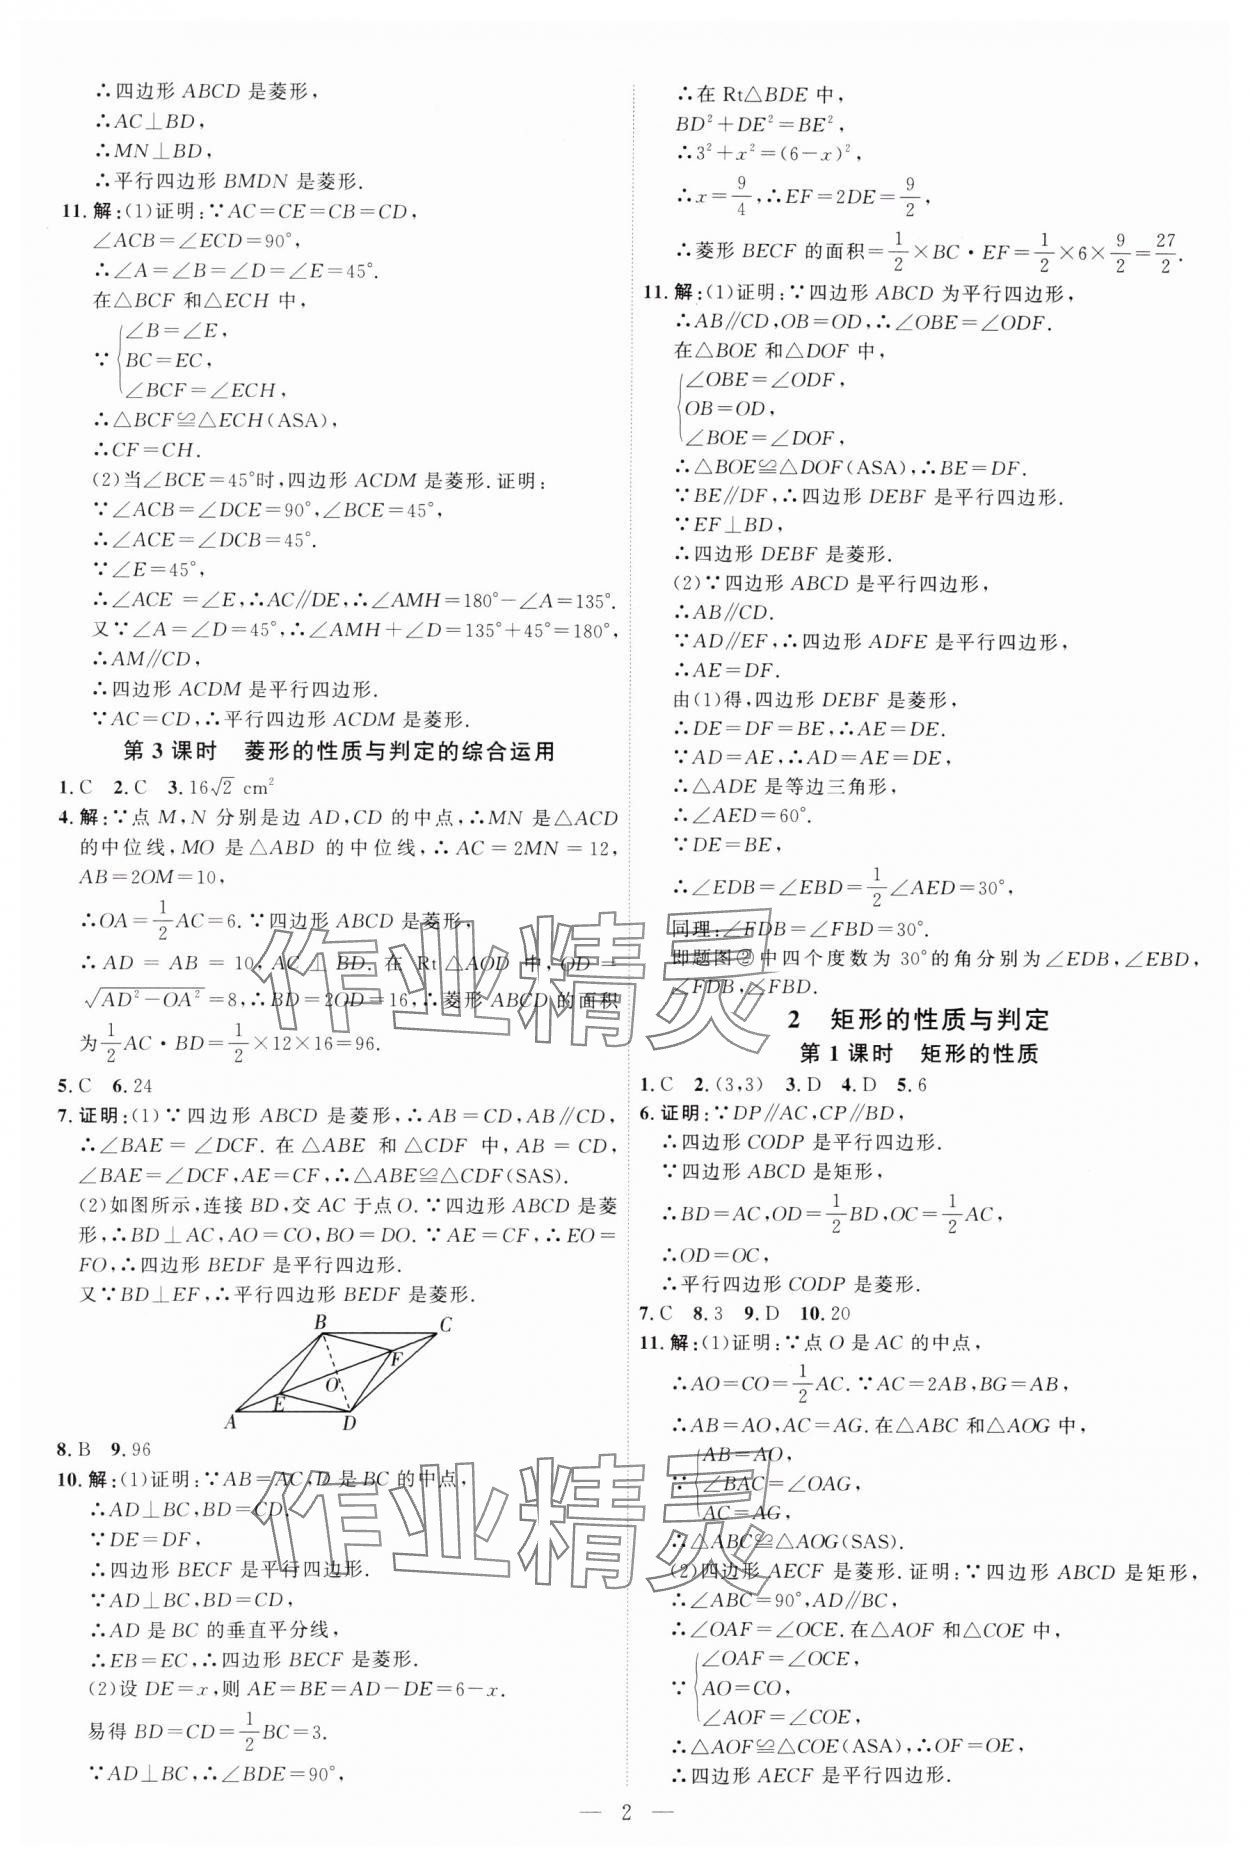 ∴四边形 ABCD 是菱形,
∴AC⊥BD,
∴MN⊥BD,
∴平行四边形 BMDN 是菱形.
11.解:(1)证明:∵AC=CE=CB=CD,
∠ACB=∠ECD=90°,
∴∠A=∠B=∠D=∠E=45°.
在△BCF 和△ECH 中,
∠B=∠E,
∵ BC=EC,
∠BCF=∠ECH,
∴△BCF≌△ECH(ASA),
∴CF=CH.
(2)当∠BCE=45°时,四边形 ACDM 是菱形.证明:
∵∠ACB=∠DCE=90°,∠BCE=45°,
∴∠ACE=∠DCB=45°.
∵∠E=45°,
∴∠ACE =∠E,∴AC∥DE,∴∠AMH=180°-∠A=135°.
又∵∠A=∠D=45°,∴∠AMH+∠D=135°+45°=180°,
∴AM∥CD,
∴四边形 ACDM 是平行四边形.
∵AC=CD,∴平行四边形 ACDM 是菱形.
第 3 课时 菱形的性质与判定的综合运用
1.C 2.C 3.16√2 cm²
4.解:∵点 M,N 分别是边 AD,CD 的中点,∴MN 是△ACD
的中位线,MO 是△ABD 的中位线,∴AC=2MN=12,
AB=2OM=10,
∴OA=1/2AC=6.∵四边形 ABCD 是菱形,
∴AD=AB=10,AC⊥BD. 在 Rt△AOD 中,OD=
√(AD²-OA²)=8,∴BD=2OD=16,∴菱形 ABCD 的面积
为1/2AC·BD=1/2×12×16=96.
5.C 6.24
7.证明:(1)∵四边形 ABCD 是菱形,∴AB=CD,AB∥CD,
∴∠BAE=∠DCF. 在△ABE 和△CDF 中,AB=CD,
∠BAE=∠DCF,AE=CF,∴△ABE≌△CDF(SAS).
(2)如图所示,连接 BD,交 AC 于点 O.∵四边形 ABCD 是菱
形,∴BD⊥AC,AO=CO,BO=DO.∵AE=CF,∴EO=
FO,∴四边形 BEDF 是平行四边形.
又∵BD⊥EF,∴平行四边形 BEDF 是菱形.
B C
F
O
E
A D
8.B 9.96
10.解:(1)证明:∵AB=AC,D 是 BC 的中点,
∴AD⊥BC,BD=CD.
∵DE=DF,
∴四边形 BECF 是平行四边形.
∵AD⊥BC,BD=CD,
∴AD 是 BC 的垂直平分线,
∴EB=EC,∴四边形 BECF 是菱形.
(2)设 DE=x,则 AE=BE=AD-DE=6-x.
易得 BD=CD=1/2BC=3.
∵AD⊥BC,∴∠BDE=90°,
∴在 Rt△BDE 中,
BD²+DE²=BE²,
∴3²+x²=(6-x)²,
∴x=9/4,∴EF=2DE=9/2,
∴菱形 BECF 的面积=1/2×BC·EF=1/2×6×9/2=27/2.
11.解:(1)证明:∵四边形 ABCD 为平行四边形,
∴AB∥CD,OB=OD,∴∠OBE=∠ODF.
在△BOE 和△DOF 中,
∠OBE=∠ODF,
OB=OD,
∠BOE=∠DOF,
∴△BOE≌△DOF(ASA),∴BE=DF.
∵BE∥DF,∴四边形 DEBF 是平行四边形.
∵EF⊥BD,
∴四边形 DEBF 是菱形.
(2)∵四边形 ABCD 是平行四边形,
∴AB∥CD.
∵AD∥EF,∴四边形 ADFE 是平行四边形,
∴AE=DF.
由(1)得,四边形 DEBF 是菱形,
∴DE=DF=BE,∴AE=DE.
∵AD=AE,∴AD=AE=DE,
∴△ADE 是等边三角形,
∴∠AED=60°.
∵DE=BE,
∴∠EDB=∠EBD=1/2∠AED=30°,
同理:∠FDB=∠FBD=30°.
即题图②中四个度数为 30°的角分别为∠EDB,∠EBD,
∠FDB,∠FBD.
2 矩形的性质与判定
第 1 课时 矩形的性质
1.C 2.(3,3) 3.D 4.D 5.6
6.证明:∵DP∥AC,CP∥BD,
∴四边形 CODP 是平行四边形.
∵四边形 ABCD 是矩形,
∴BD=AC,OD=1/2BD,OC=1/2AC,
∴OD=OC,
∴平行四边形 CODP 是菱形.
7.C 8.3 9.D 10.20
11.解:(1)证明:∵点 O 是 AC 的中点,
∴AO=CO=1/2AC.∵AC=2AB,BG=AB,
∴AB=AO,AC=AG.在△ABC 和△AOG 中,
AB=AO,
∵ ∠BAC=∠OAG,
AC=AG,
∴△ABC≌△AOG(SAS).
(2)四边形 AECF 是菱形.证明:∵四边形 ABCD 是矩形,
∴∠ABC=90°,AD∥BC,
∴∠OAF=∠OCE.在△AOF 和△COE 中,
∠OAF=∠OCE,
∵ AO=CO,
∠AOF=∠COE,
∴△AOF≌△COE(ASA),∴OF=OE,
∴四边形 AECF 是平行四边形.
作业精灵
作业精灵
— 2 —